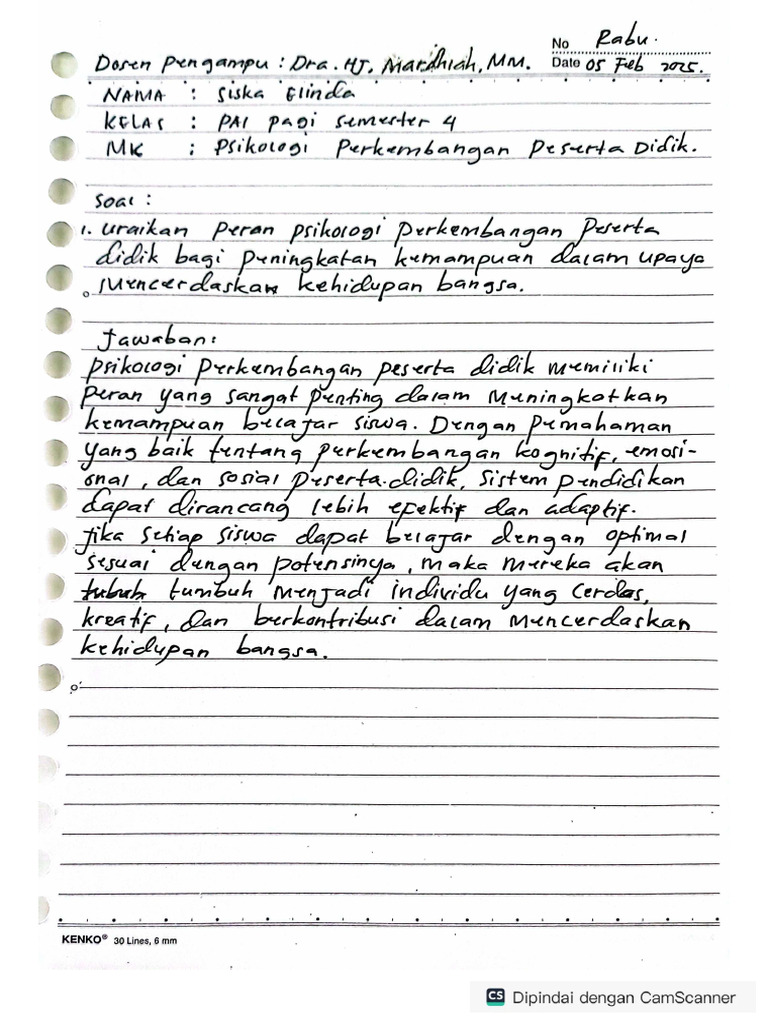 No Rabu.
Dosen Pengampu : Dra. Hj. Mardhiah, MM. Date 05 Feb 2025.
NAMA : Siska Elinda
KELAS : PAI pagi semester 4
MK : Psikologi Perkembangan Peserta Didik.
Soal :
1. Uraikan peran psikologi perkembangan peserta
didik bagi peningkatan kemampuan dalam upaya
mencerdaskan kehidupan bangsa.
Jawaban:
Psikologi perkembangan peserta didik memiliki
peran yang sangat penting dalam meningkatkan
kemampuan belajar siswa. Dengan pemahaman
yang baik tentang perkembangan kognitif, emosi-
onal, dan sosial peserta didik, sistem pendidikan
dapat dirancang lebih efektif dan adaptif.
Jika setiap siswa dapat belajar dengan optimal
sesuai dengan potensinya, maka mereka akan
tumbuh menjadi individu yang cerdas,
kreatif, dan berkontribusi dalam mencerdaskan
kehidupan bangsa.
KENKO® 30 Lines, 6 mm
CS Dipindai dengan CamScanner